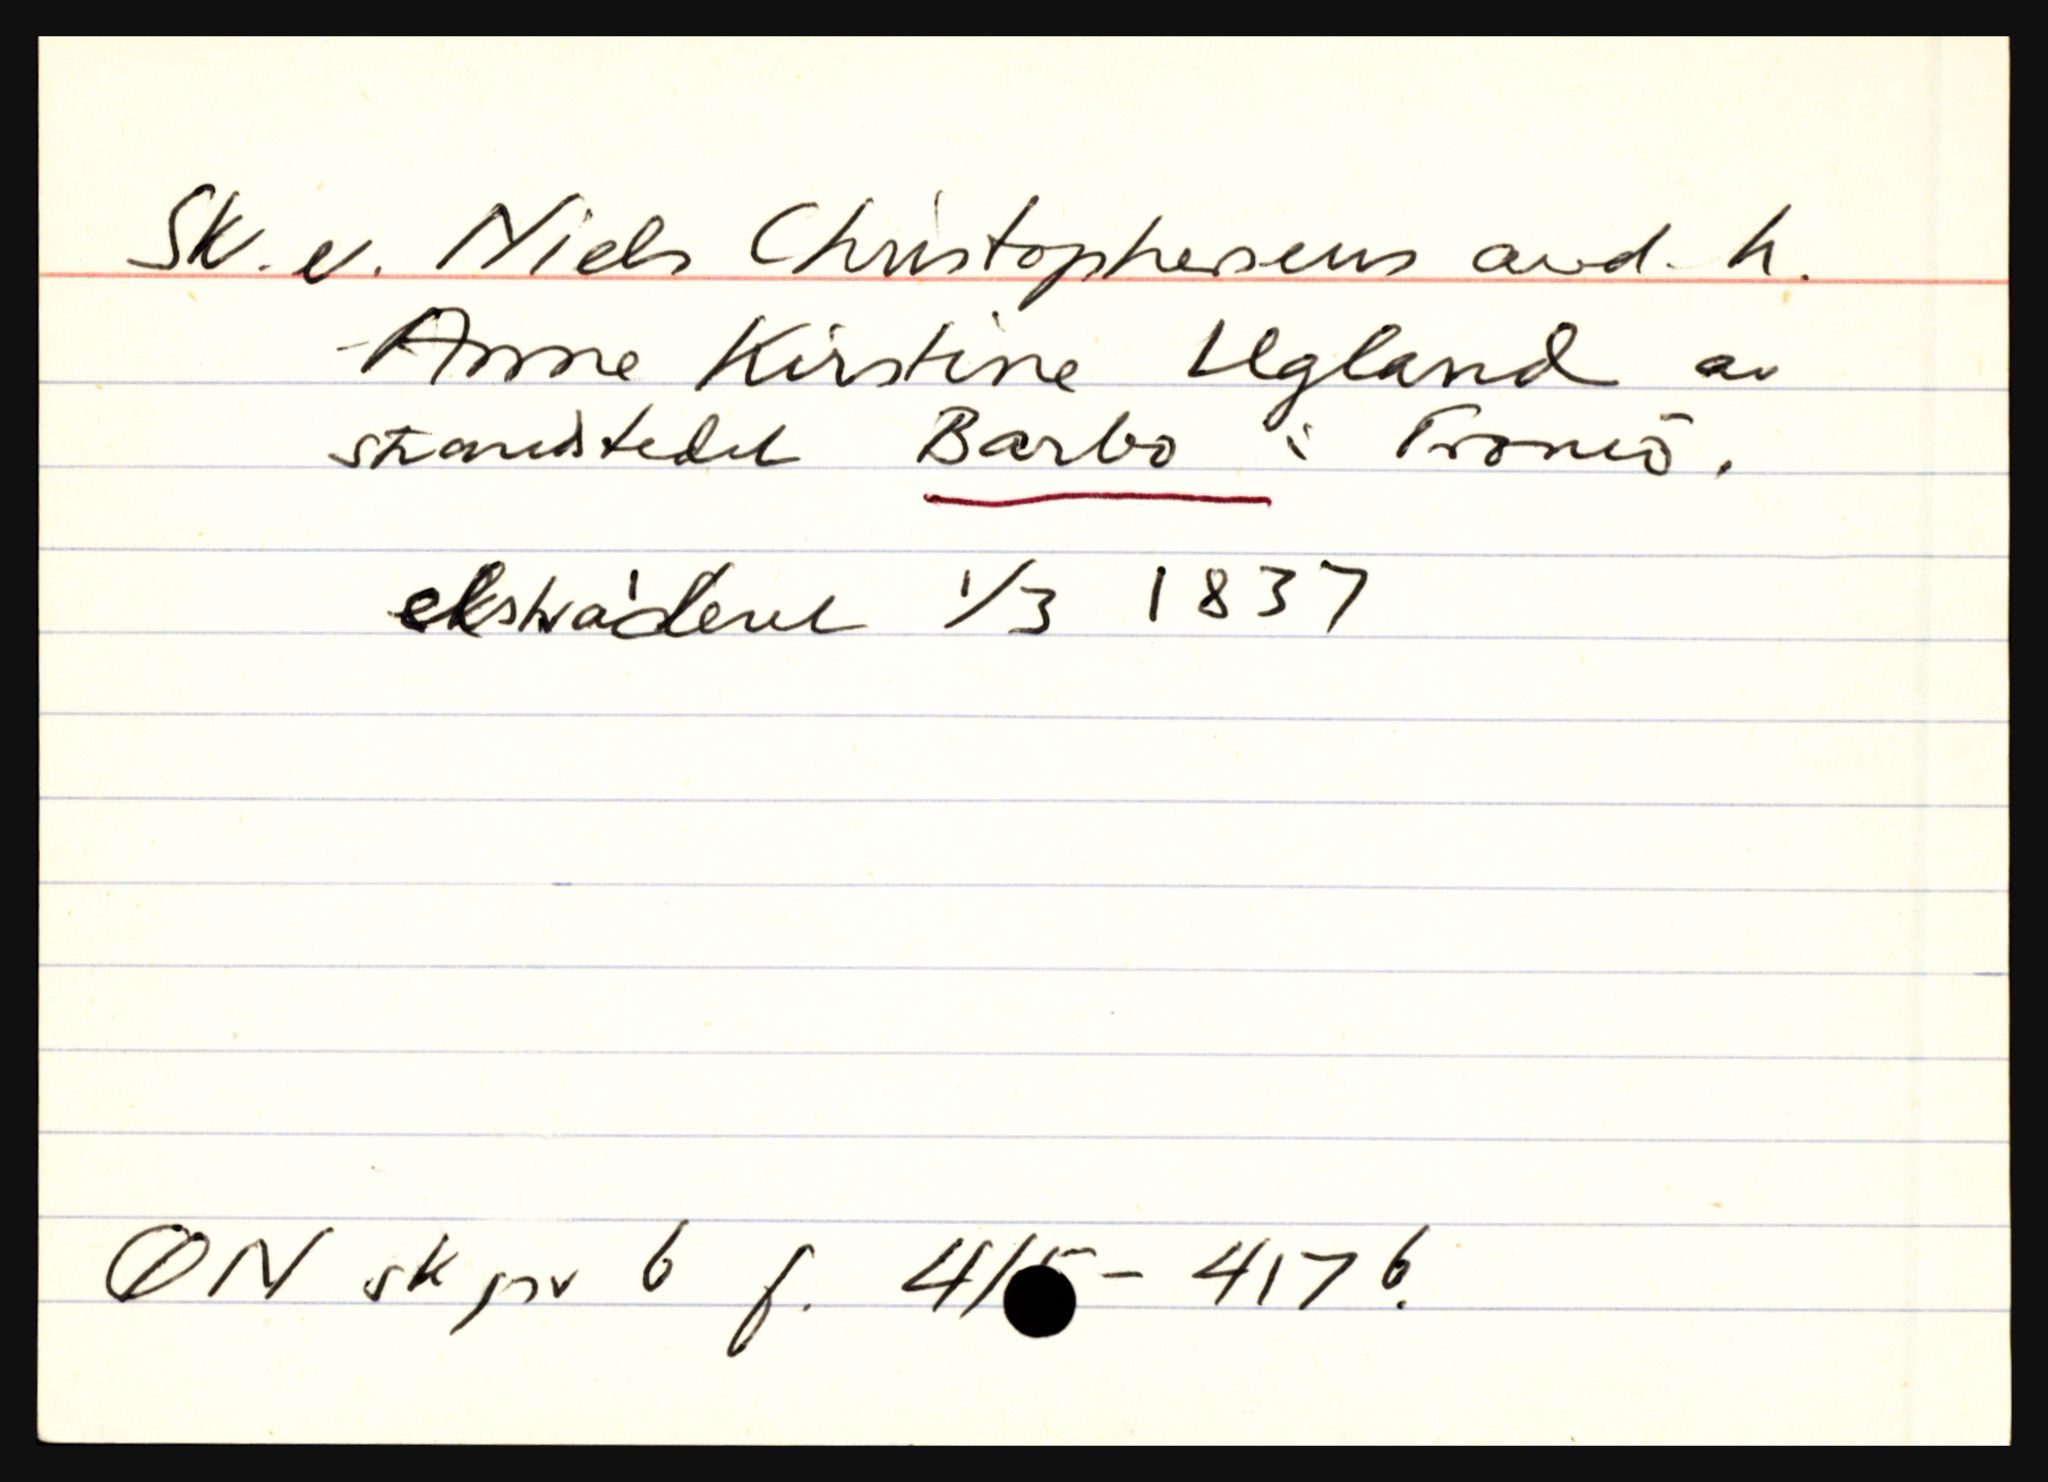 Sk. e. Niels Christophersens avd. h.
Anne Kirstine Ugland av
strandstedet Barbo i Tromö.
ekstraderet 1/3 1837
ØN sk pr 6 f. 415 - 417 b.